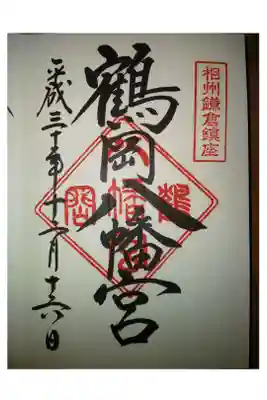 相州鎌倉鎮座
鶴岡八幡宮
平成三十年十一月十六日